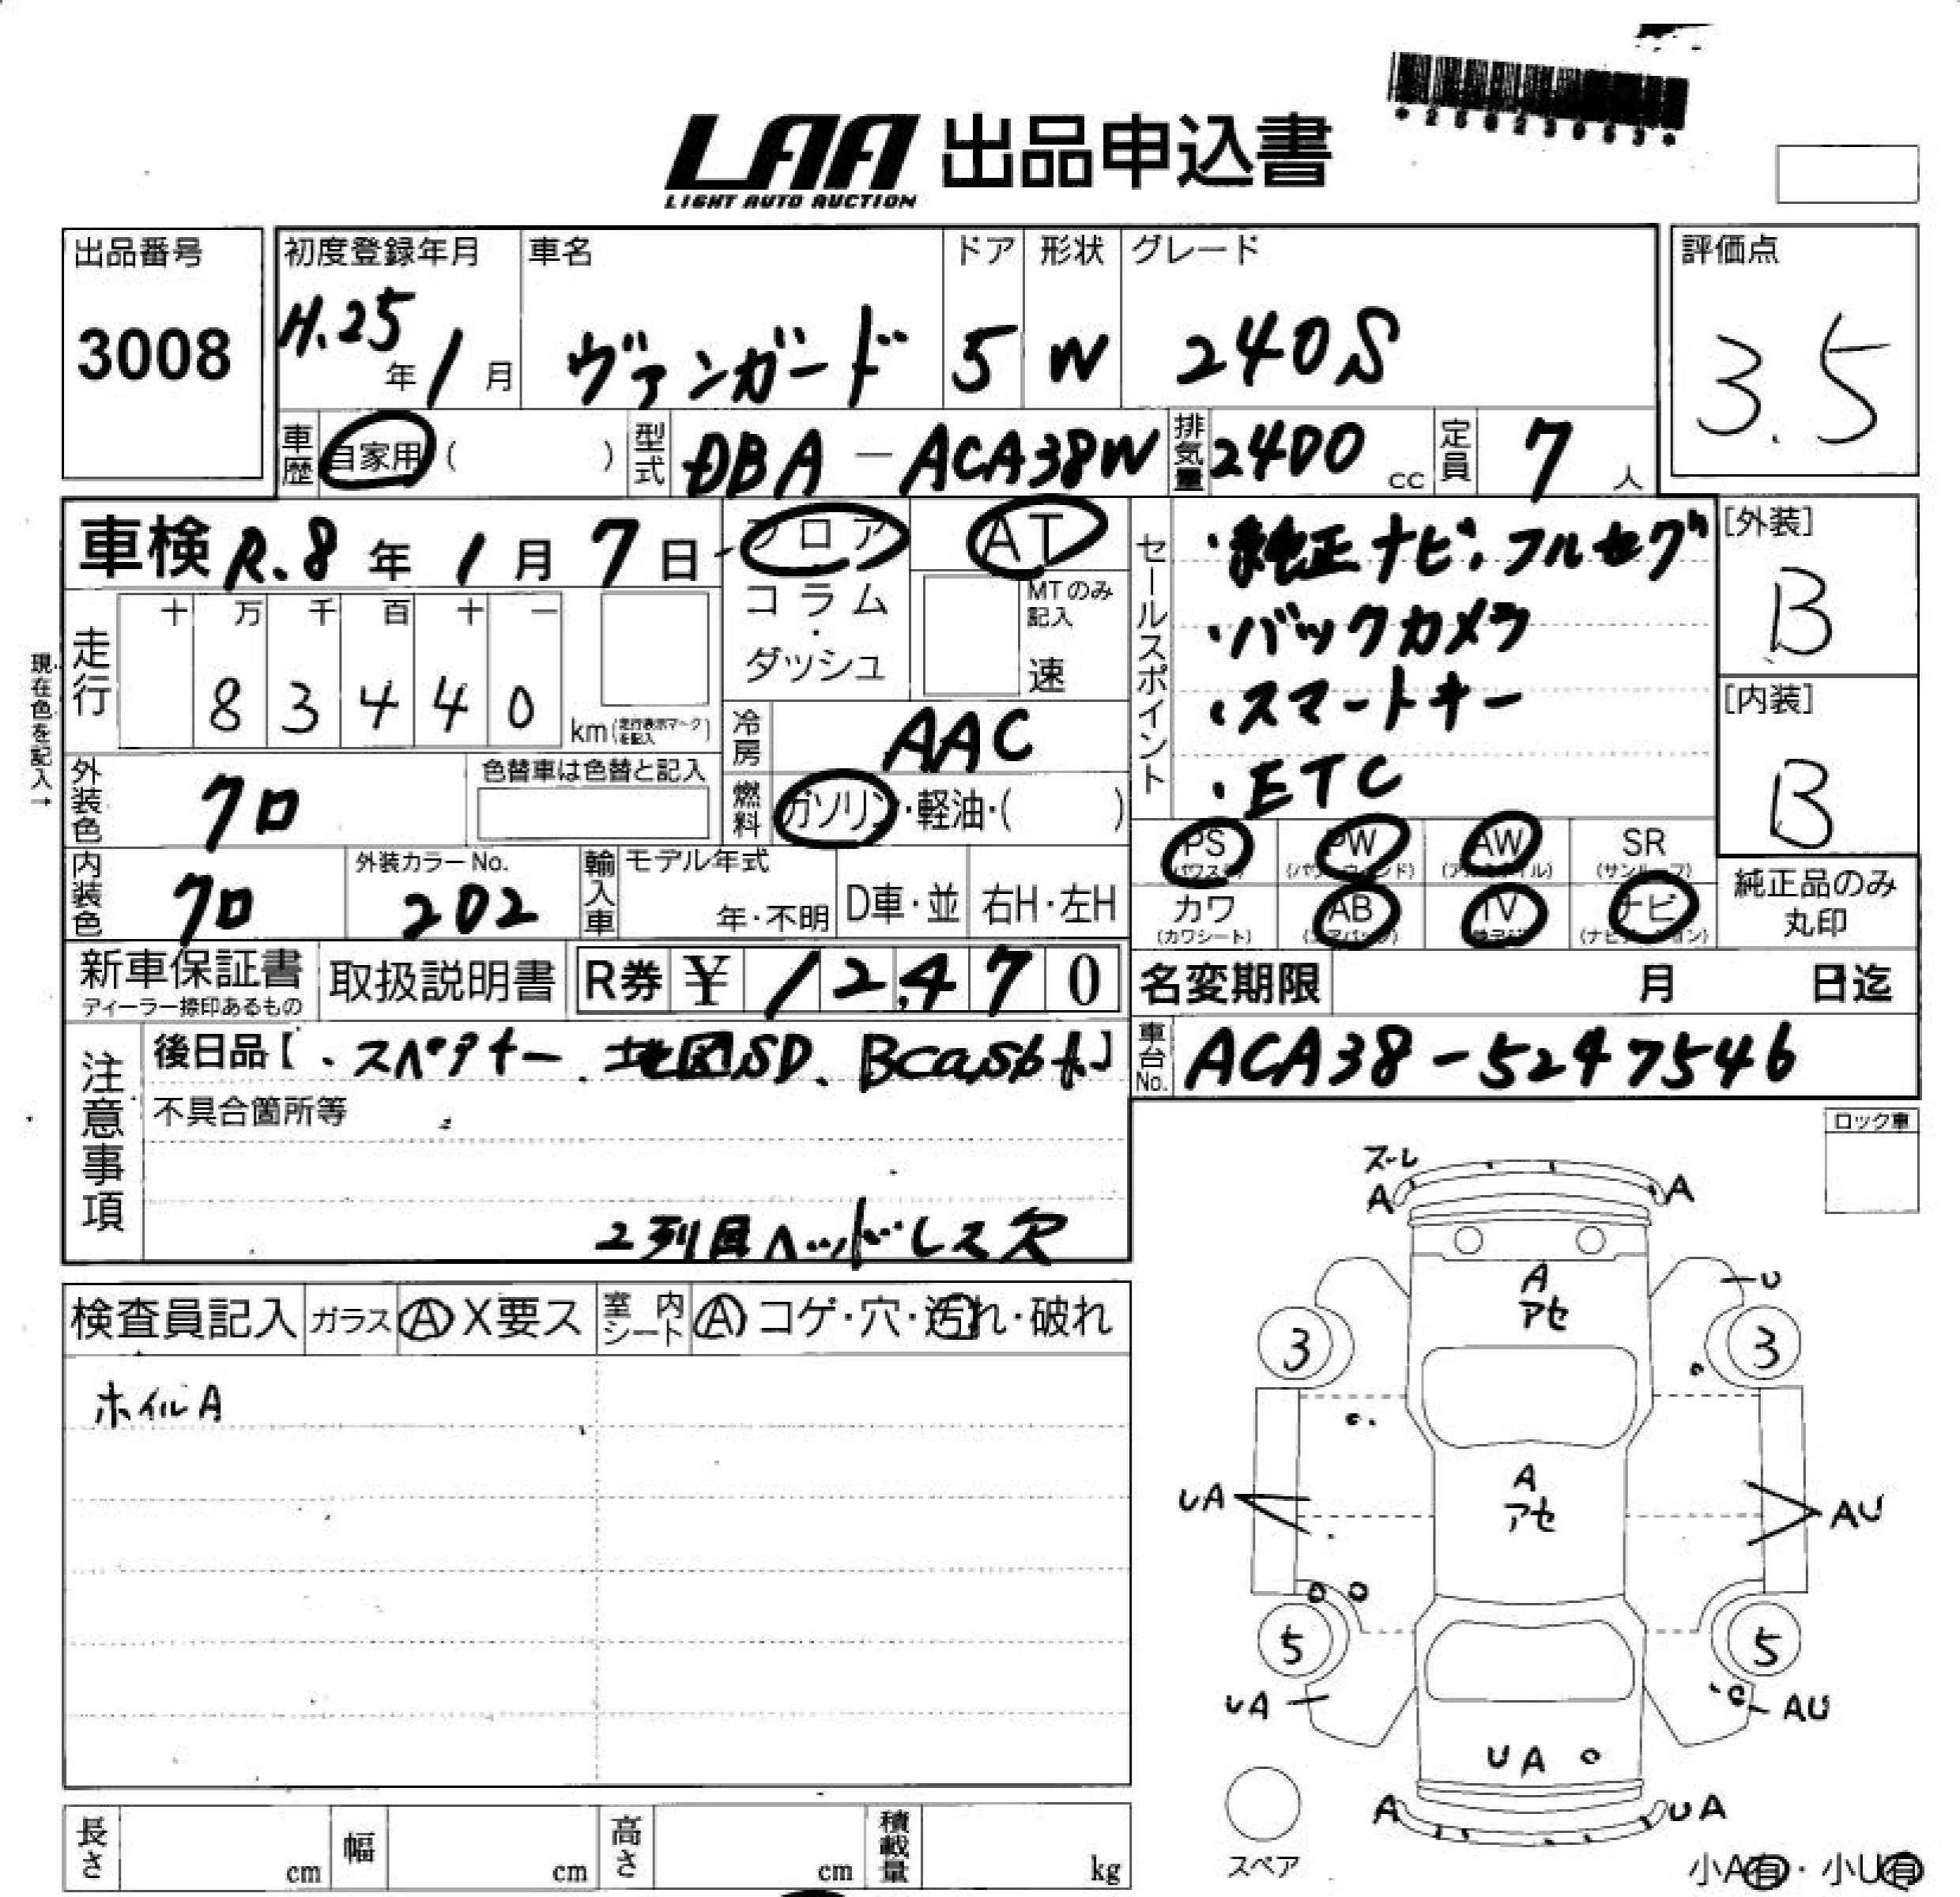 *25023053*
LAA 出品申込書
LIGHT AUTO AUCTION
出品番号
3008
初度登録年月
H.25年1月
車名
ヴァンガード
ドア
5
形状
W
グレード
240S
評価点
3.5
車歴 自家用( )
型式 DBA-ACA38W
排気量 2400cc
定員 7人
車検 R.8年1月7日
フロア
コラム・ダッシュ
AT
MTのみ記入
速
セールスポイント
・純正ナビ・フルセグ
・バックカメラ
・スマートキー
・ETC
[外装]
B
[内装]
B
現在色を記入→
走行
十万千百十一
83440
km(走行表示マークを記入)
冷房 AAC
燃料 ガソリン・軽油・( )
外装色 クロ
色替車は色替と記入
内装色 クロ
外装カラーNo.
202
輸入車
モデル年式
年・不明
D車・並
右H・左H
PS (パワステ)
PW (パワーウィンド)
AW (アルミホイル)
SR (サンルーフ)
カワ (カワシート)
AB (エアバッグ)
TV
ナビ (ナビゲーション)
純正品のみ丸印
新車保証書
ディーラー捺印あるもの
取扱説明書
R券 ¥12,470
名変期限 月 日迄
注意事項
後日品【・スペアキー、地図SD、Bcas 】
車台No. ACA38-5247546
不具合箇所等
2列目ヘッドレス欠
ロック車
検査員記入
ガラス A X要ス
室内シート A コゲ・穴・汚れ・破れ
ホイルA
ズレ
A A
A
アセ
U
3 3
A
アセ
UA AU
5 5
UA AU
UA
A UA
スペア
小A有・小U有
長さ cm
幅 cm
高さ cm
積載量 kg